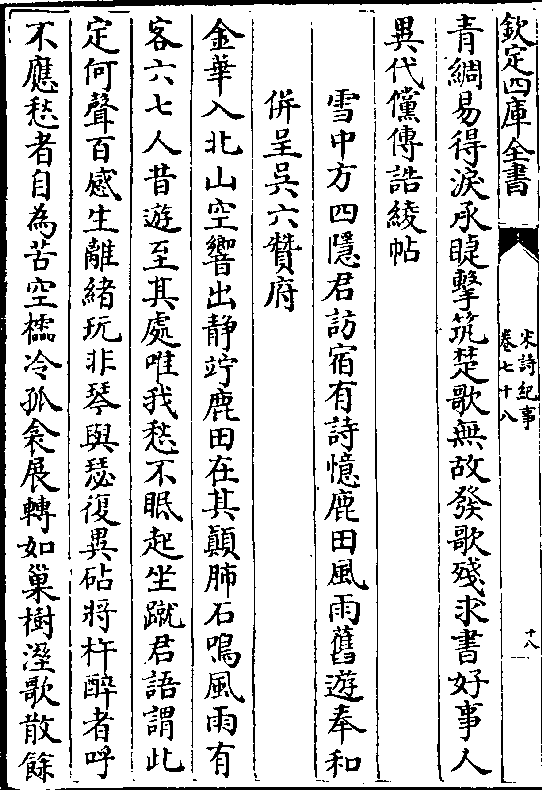 欽定四庫全書
宋詩紀事
卷七十八
十八
青綢易得淚承睫擊筑楚歌無故發歌殘求書好事人
異代儻傳誥綾帖
雪中方四隱君訪宿有詩憶鹿田風雨舊遊奉和
併呈吳六贊府
金華入北山空響出静竚鹿田在其顛肺石鳴風雨有
客六七人昔遊至其處唯我愁不眠起坐蹴君語謂此
定何聲百感生離緒玩非琴與瑟復異砧將杵醉者呼
不應愁者自為苦空檽冷孤衾展轉如巢樹溼歌散餘